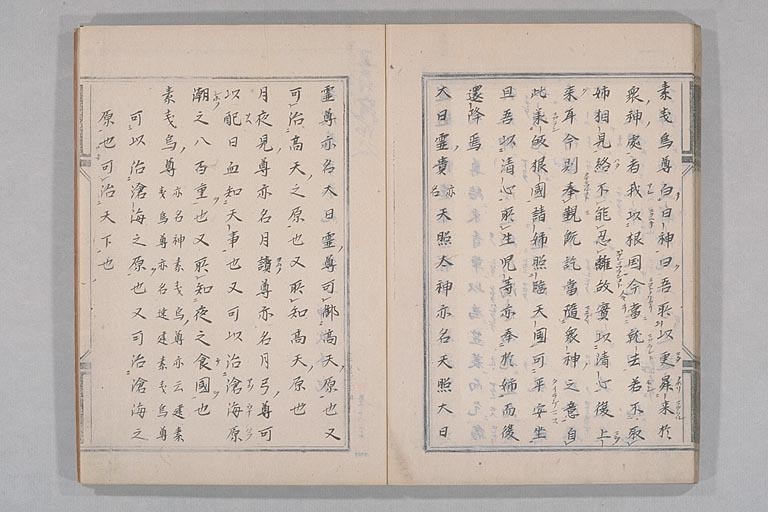 素戔烏尊白日神曰吾所以更昇来於
衆神處者我以根国今當就去若不
姉相見終不能忍離故實以清心後上
来耳今則奉覲既訖當隨衆神之意自
此永敀根国請姉照臨天国可平安坐
且吾以清心所生児等亦奉於姉而後
還降焉
大日孁貴亦名天照太神亦名天照大日
孁尊亦名大日孁尊可御高天原也又
可治高天之原也又所知高天原也
月夜見尊亦名月讀尊亦名月弓尊可
以配日而知天事也又可以治滄海原
潮之八百重也又所知夜之食国也
素戔烏尊亦名神素戔烏尊亦云建素
戔烏尊亦名速建素戔烏尊
可以治滄海之原也又可治滄海之
原也可治天下也